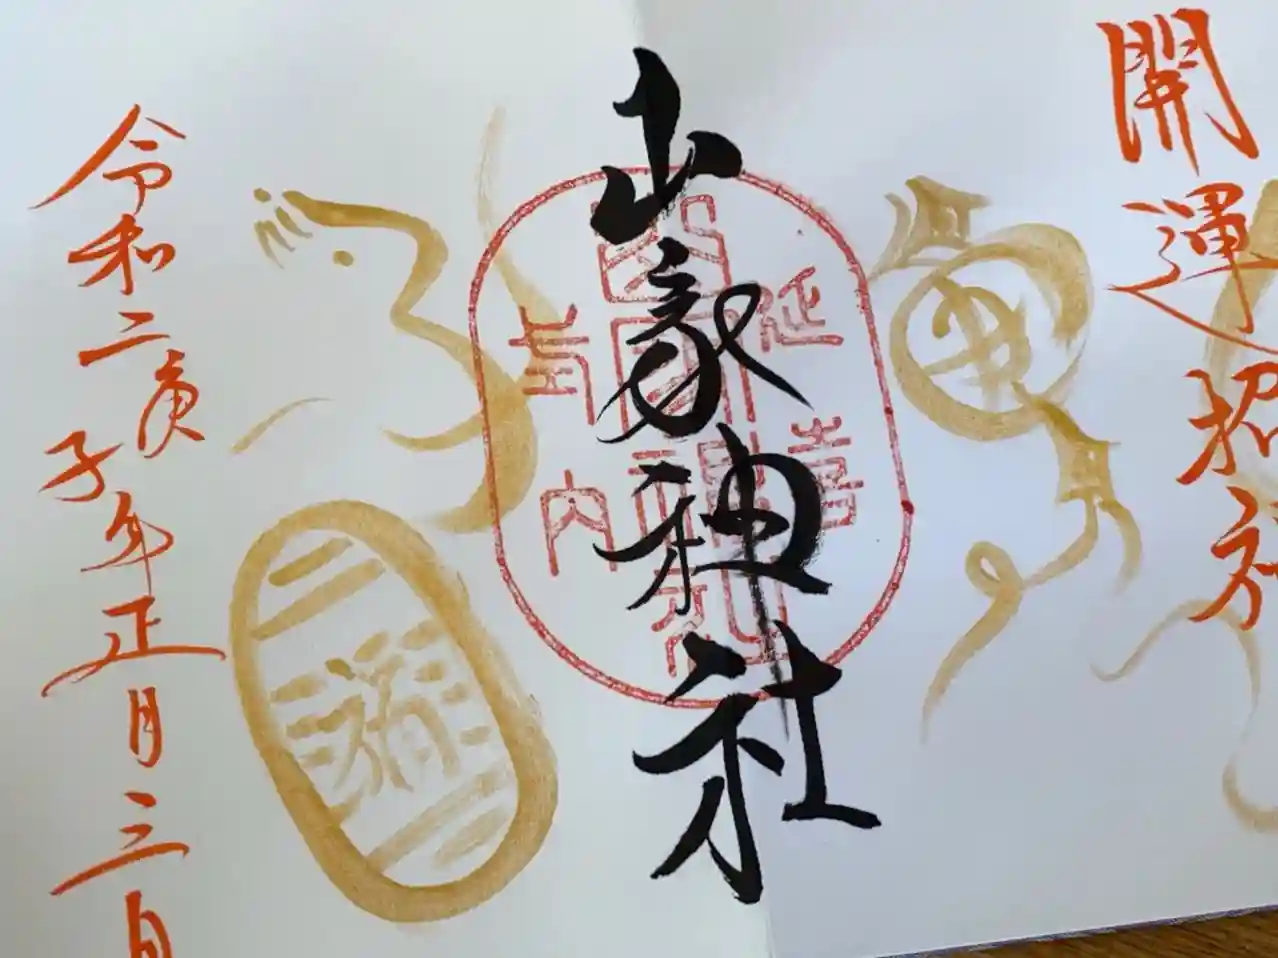 開運招福
山家神社
延喜式内
令和二庚子年正月三日